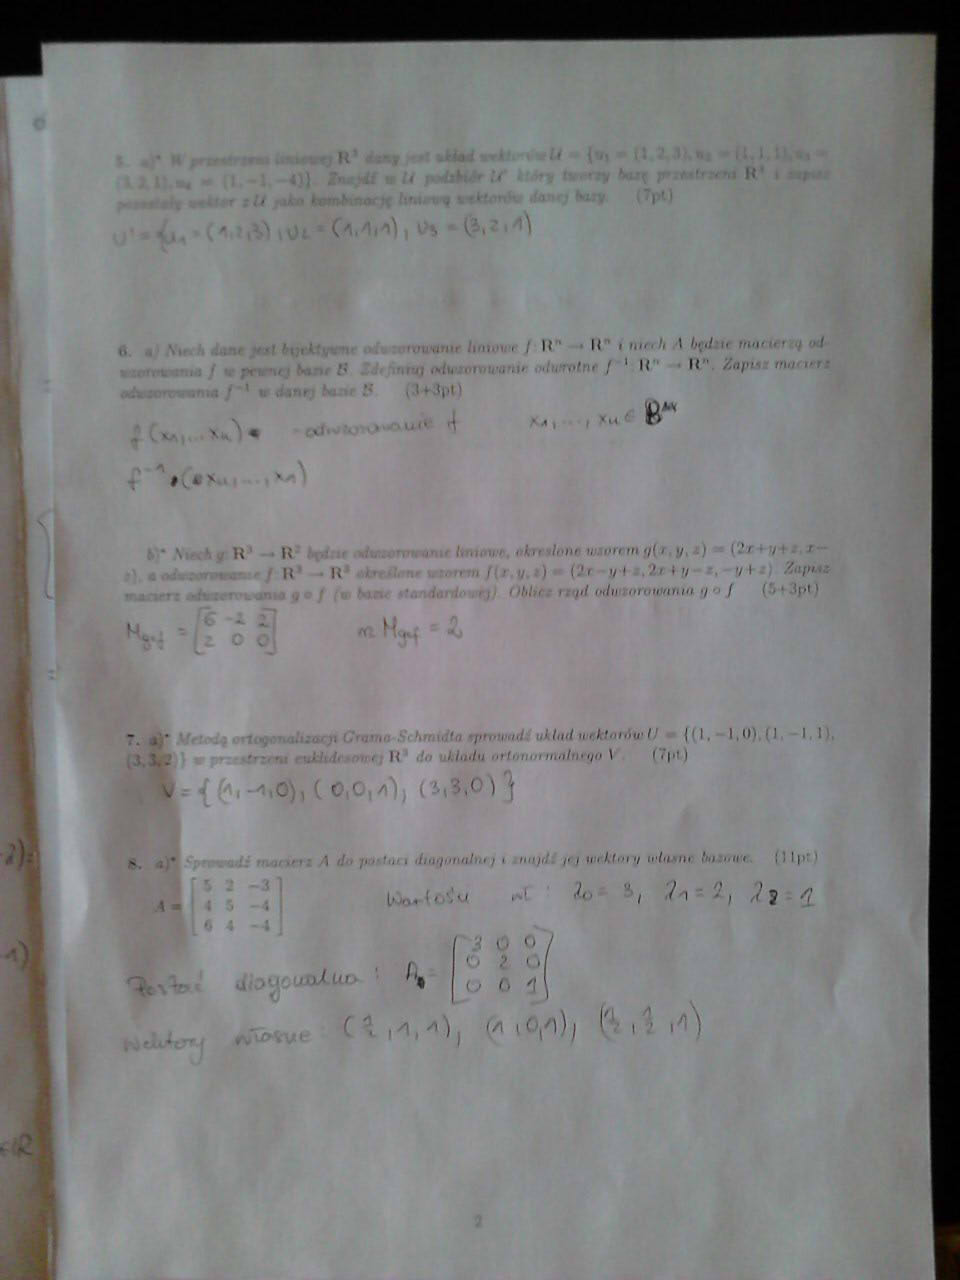 5. a)* W przestrzeni liniowej R³ dany jest układ wektorów U = {u₁ = (1, 2, 3), u₂ = (1, 1, 1), u₃ =
(3, 2, 1), u₄ = (1, −1, −4)}. Znajdź w U podzbiór U' który tworzy bazę przestrzeni R³ i zapisz
pozostały wektor z U jako kombinację liniową wektorów danej bazy. (7pt)
U' = {u₁ = (1,2,3), u₂ = (1,1,1), u₃ = (3,2,1)
6. a) Niech dane jest bijektywne odwzorowanie liniowe f: Rⁿ → Rⁿ i niech A będzie macierzą od-
wzorowania f w pewnej bazie B. Zdefiniuj odwzorowanie odwrotne f⁻¹: Rⁿ → Rⁿ. Zapisz macierz
odwzorowania f⁻¹ w danej bazie B. (3+3pt)
f(x₁,...xₙ) - odwzorowanie f x₁,...,xₙ ∈
f⁻¹ (xₙ,...,x₁)
b)* Niech g: R³ → R² będzie odwzorowanie liniowe, określone wzorem g(x, y, z) = (2x+y+z, x−
z), a odwzorowanie f: R³ → R³ określone wzorem f(x, y, z) = (2x−y+z, 2x+y−z, −y+z). Zapisz
macierz odwzorowania g ∘ f (w bazie standardowej). Oblicz rząd odwzorowania g ∘ f (5+3pt)
6 −2 2
M g∘f = rz M g∘f = 2
2 0 0
7. a)* Metodą ortogonalizacji Grama-Schmidta sprowadź układ wektorów U = {(1, −1, 0), (1, −1, 1),
(3, 3, 2)} w przestrzeni euklidesowej R³ do układu ortonormalnego V. (7pt)
V = { (1,−1,0), (0,0,1), (3,3,0) }
8. a)* Sprowadź macierz A do postaci diagonalnej i znajdź jej wektory własne bazowe. (11pt)
5 2 −3
A = 4 5 −4 Wartości wł: λ₀ = 3, λ₁ = 2, λ₂ = 1
6 4 −4
3 0 0
Postać diagonalna: A = 0 2 0
0 0 1
Wektory własne: (½, 1, 1), (1, 0, 1), (½, ½, 1)
2
∈ℝ